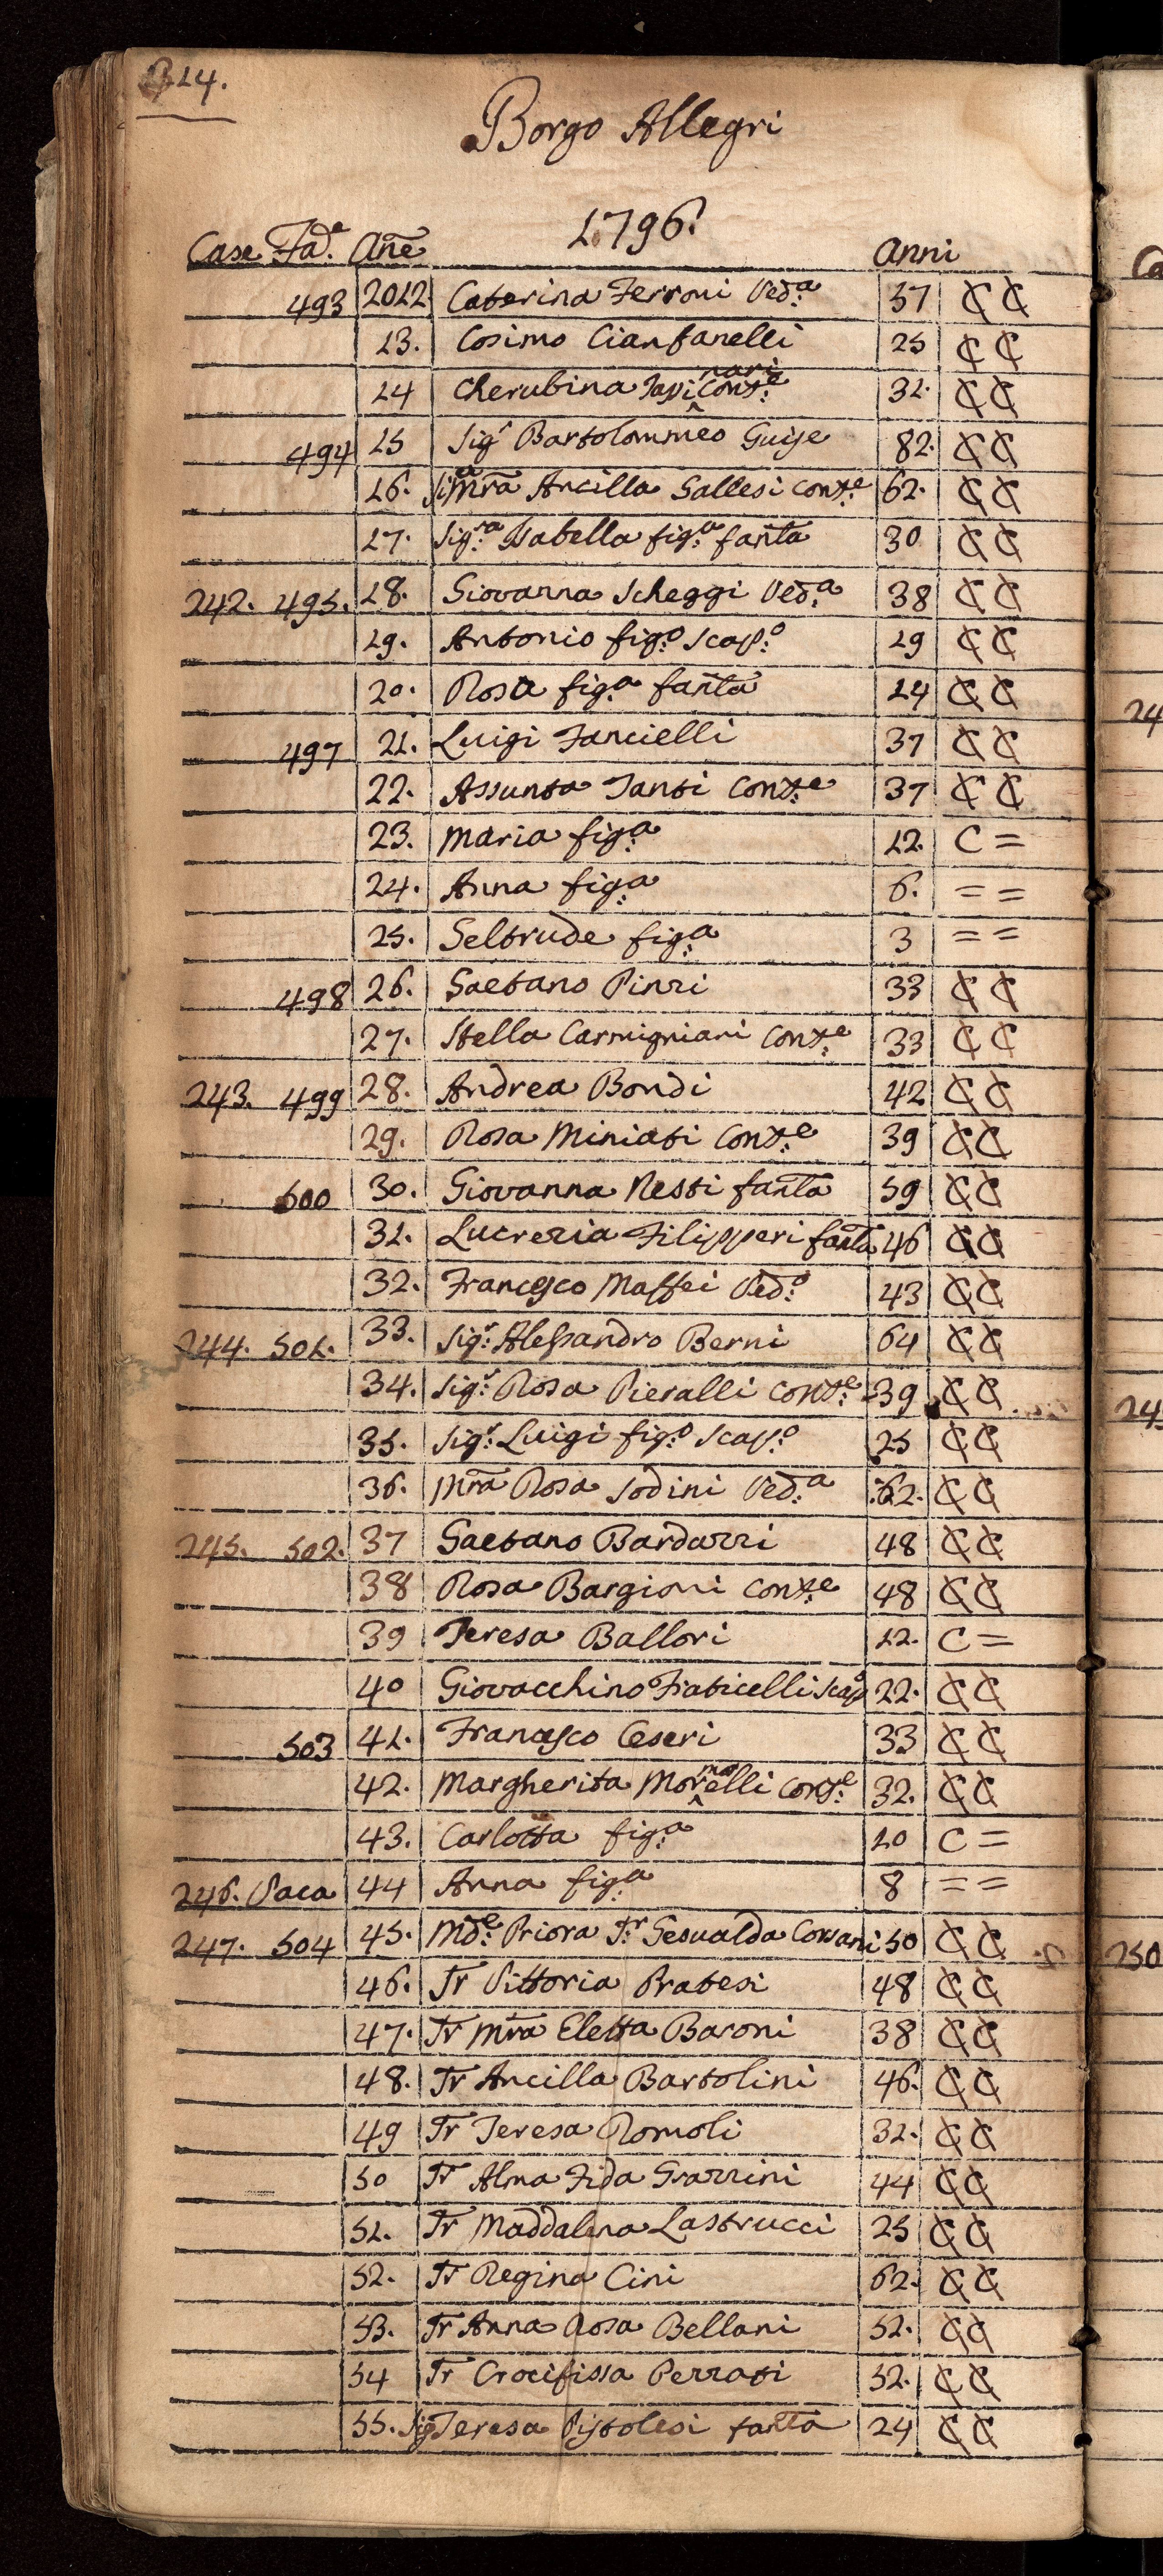 114.
Borgo Allegri
1796.
Case Fad.e Añe Anni
493 2012. Caterina Ferroni Ved.a 37 C C
13. Cosimo Cianfanelli 25 C C
14 Cherubina Tapinari Cons.e 32. C C
494 15 Sig.r Bartolommeo Guise 82. C C
16. Si.a Mr̃a Ancilla Gallesi Cons.e 62. C C
17. Sig.ra Isabella fig.a fañta 30 C C
242. 495. 18. Giovanna Scheggi Ved.a 38 C C
19. Antonio fig.o scap.o 19 C C
20. Rosa fig.a fañta 14 C C
497 21. Luigi Fancielli 37 C C
22. Assunta Santi Cons.e 37 C C
23. Maria fig.a 12. C =
24. Anna fig.a 6. = =
25. Geltrude fig.a 3 = =
498 26. Gaetano Pinzi 33 C C
27. Stella Carmigniani Cons.e 33 C C
243. 499 28. Andrea Bondi 42 C C
29. Rosa Miniati Cons.e 39 C C
500 30. Giovanna Nesti fañta 59 C C
31. Lucrezia Filipperi fañta 46 C C
32. Francesco Maffei Ved.o 43 C C
244. 501. 33. Sig.r Alessandro Berni 64 C C
34. Sig.r Rosa Pieralli Cons.e 39 C C
35. Sig.r Luigi fig.o scap.o 25 C C
36. Mr̃a Rosa Sodini Ved.a 62. C C
245. 502. 37 Gaetano Bardazzi 48 C C
38 Rosa Bargioni Cons.e 48 C C
39 Teresa Ballori 12. C =
40 Giovacchino Fraticelli scap.o 22. C C
503 41. Francesco Ceseri 33 C C
42. Margherita Mormorelli Cons.e 32. C C
43. Carlotta fig.a 10 C =
246. Vaca 44 Anna fig.a 8 = =
247. 504 45. Md.e Priora Sr. Gesualda Corsani 50 C C
46. Sr Vittoria Pratesi 48 C C
47. Sr Mr̃a Eletta Baroni 38 C C
48. Sr Ancilla Bartolini 46. C C
49 Sr Teresa Romoli 32. C C
50 Sr Alma Fida Grazzini 44 C C
51. Sr Maddalena Lastrucci 25 C C
52. Sr Regina Cini 62. C C
53. Sr Anna Rosa Bellani 52. C C
54 Sr Crocifissa Perrati 52. C C
55. Sig Teresa Pistolesi fañta 24 C C